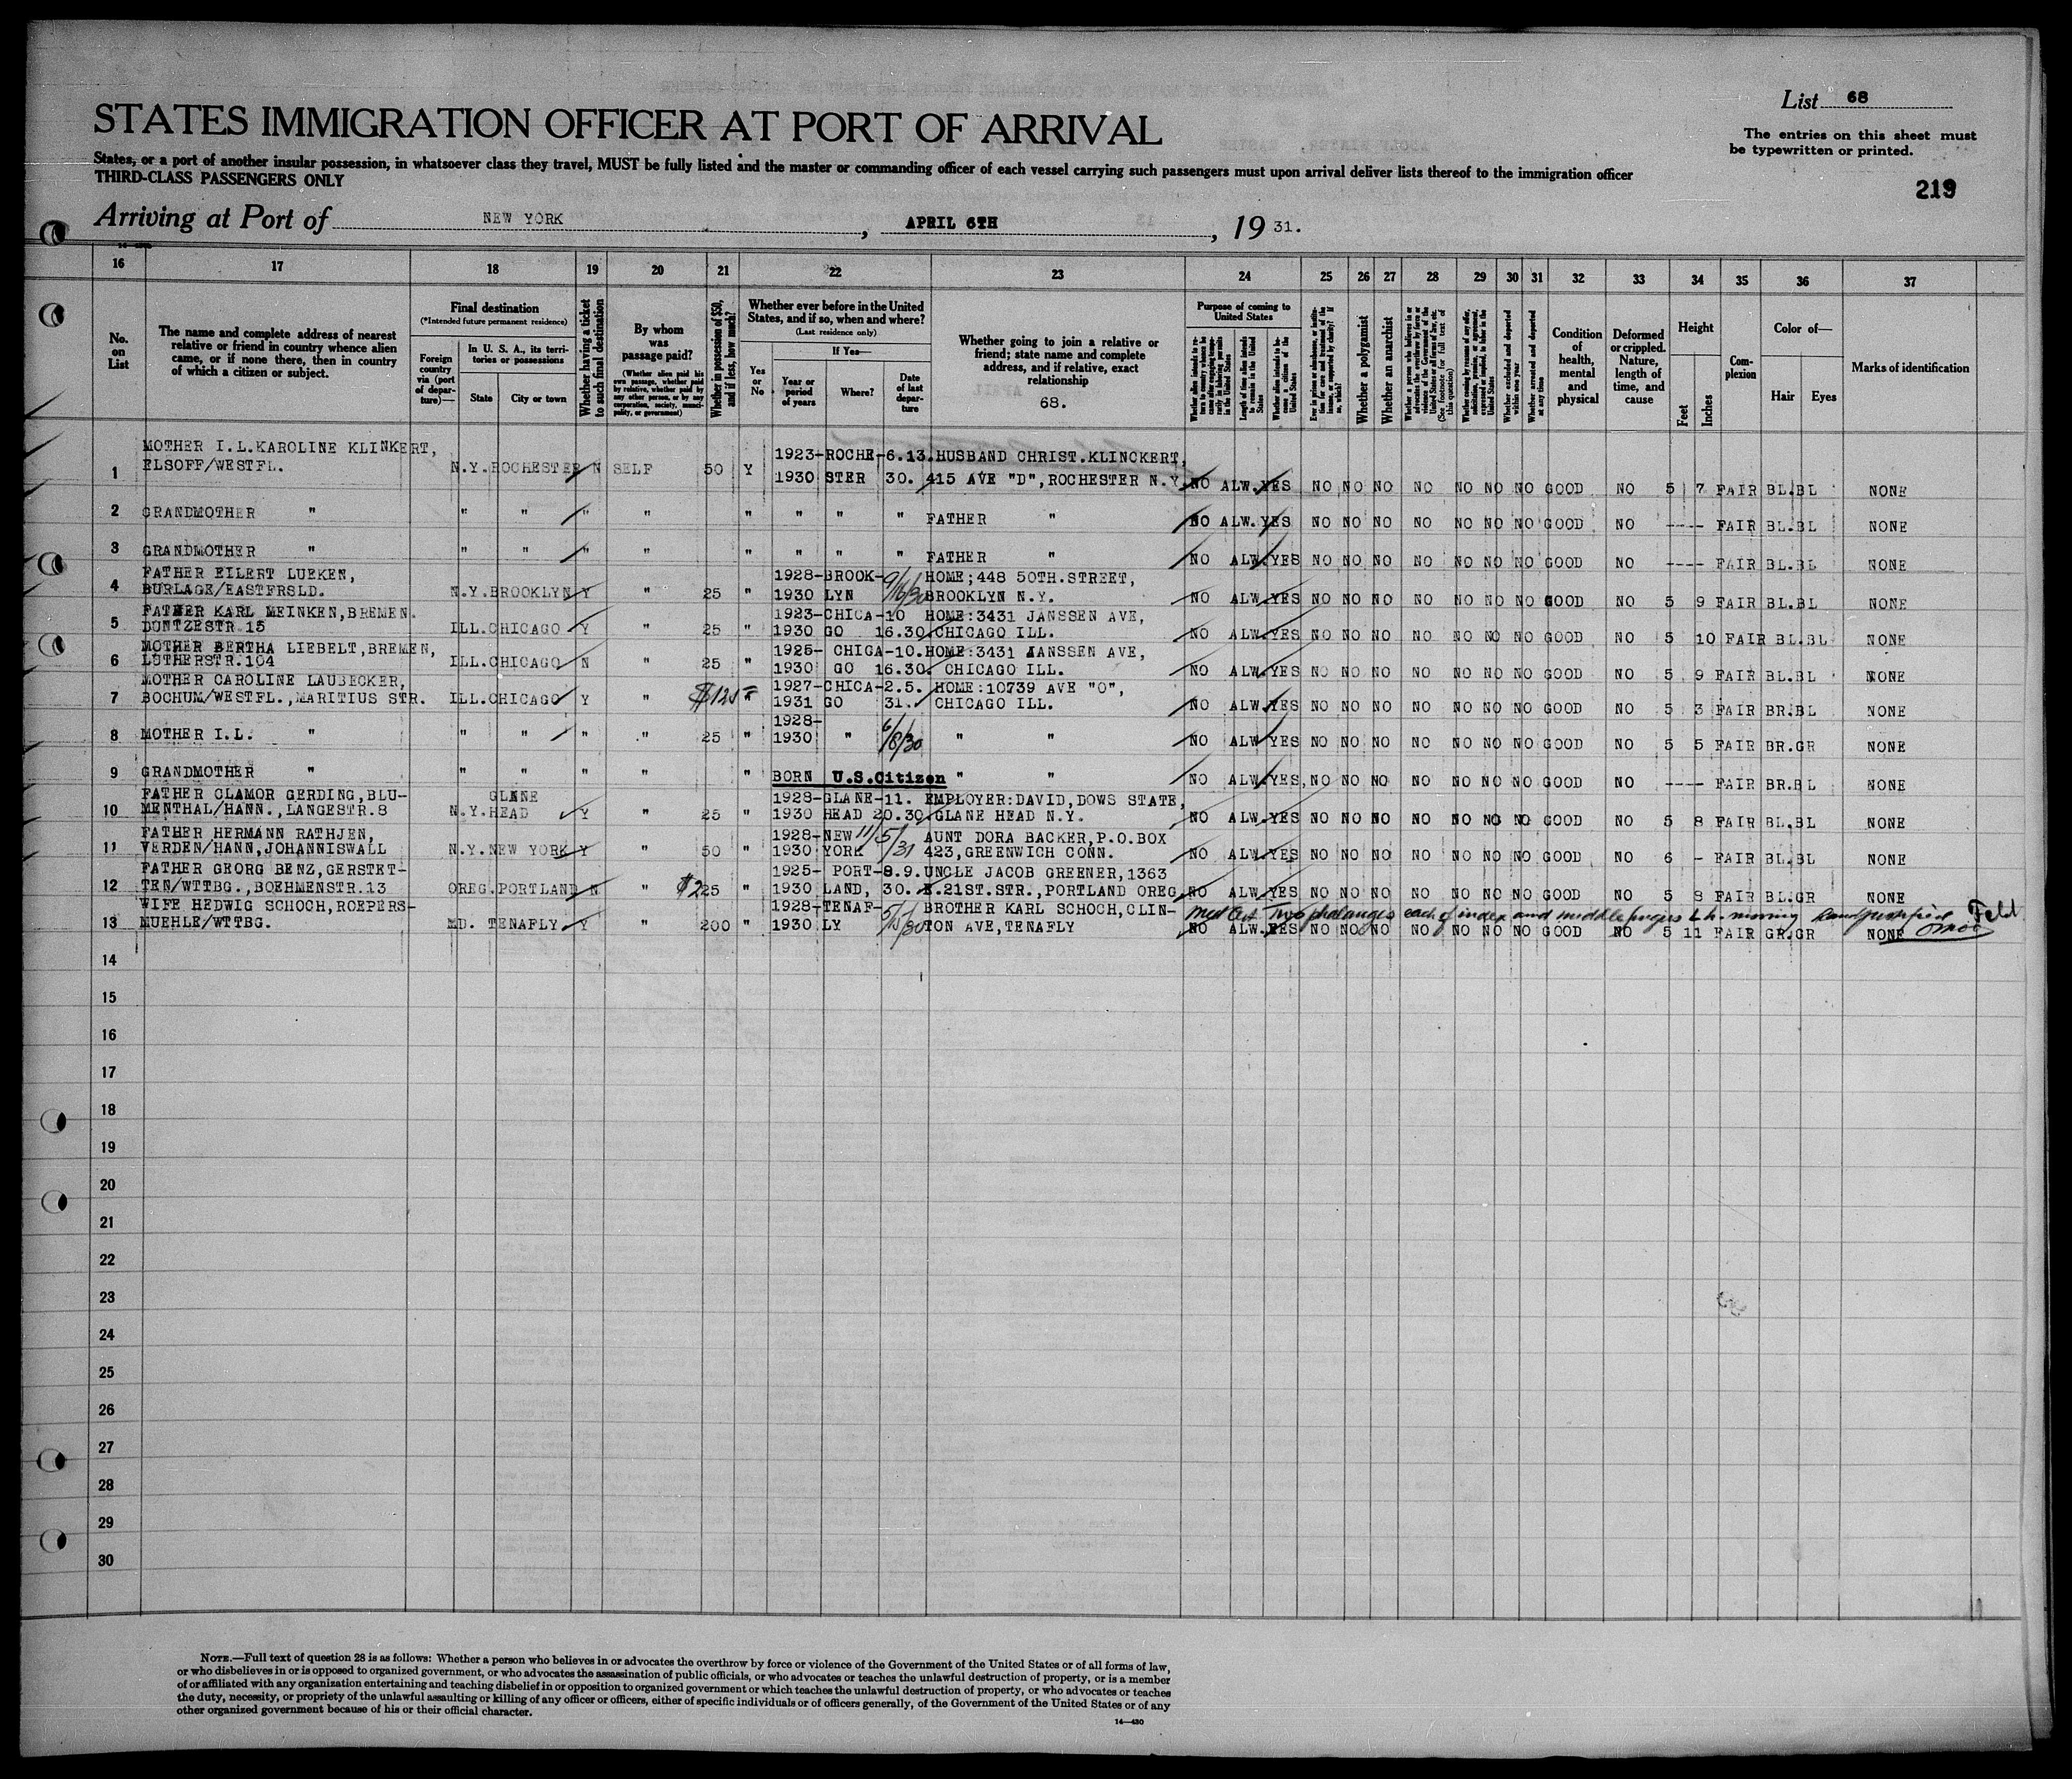 List 68
STATES IMMIGRATION OFFICER AT PORT OF ARRIVAL
The entries on this sheet must
be typewritten or printed.
States, or a port of another insular possession, in whatsoever class they travel, MUST be fully listed and the master or commanding officer of each vessel carrying such passengers must upon arrival deliver lists thereof to the immigration officer
THIRD-CLASS PASSENGERS ONLY
219
Arriving at Port of NEW YORK, APRIL 6TH, 19 31.
16 17 18 19 20 21 22 23 24 25 26 27 28 29 30 31 32 33 34 35 36 37
No. on List
The name and complete address of nearest relative or friend in country whence alien came, or if none there, then in country of which a citizen or subject.
Final destination
(*Intended future permanent residence)
Foreign country via (port of departure)—
In U. S. A., its territories or possessions
State
City or town
Whether having a ticket to such final destination
By whom was passage paid?
(Whether alien paid his own passage, whether paid by relative, whether paid by any other person, or by any corporation, society, municipality, or government)
Whether in possession of $50, and if less, how much?
Whether ever before in the United States, and if so, when and where?
(Last residence only)
Yes or No
If Yes—
Year or period of years
Where?
Date of last departure
Whether going to join a relative or friend; state name and complete address, and if relative, exact relationship
68.
Purpose of coming to United States
Length of time alien intends to remain in the United States
Whether alien intends to become a citizen of the United States
Whether a polygamist
Whether an anarchist
Whether excluded and deported within one year
Whether arrested and deported at any time
Condition of health, mental and physical
Deformed or crippled. Nature, length of time, and cause
Height
Feet
Inches
Complexion
Color of—
Hair
Eyes
Marks of identification
1 MOTHER I.L.KAROLINE KLINKERT, 1923-ROCHE-6.13.HUSBAND CHRIST.KLINCKERT,
ELSOFF/WESTFL. N.Y.ROCHESTER N SELF 50 Y 1930 STER 30. 415 AVE "D",ROCHESTER N.Y. NO ALW.YES NO NO NO NO NO NO NO GOOD NO 5 7 FAIR BL.BL NONE
2 GRANDMOTHER " " " " " " " " " FATHER " NO ALW.YES NO NO NO NO NO NO NO GOOD NO ---- FAIR BL.BL NONE
3 GRANDMOTHER " " " " " " " " " FATHER " NO ALW.YES NO NO NO NO NO NO NO GOOD NO ---- FAIR BL.BL NONE
4 FATHER EILERT LUEKEN, 1928-BROOK- 9/16/30 HOME;448 50TH.STREET,
BURLAGE/EASTFRSLD. N.Y.BROOKLYN Y " 25 " 1930 LYN BROOKLYN N.Y. NO ALW.YES NO NO NO NO NO NO NO GOOD NO 5 9 FAIR BL.BL NONE
5 FATHER KARL MEINKEN,BREMEN. 1923-CHICA-10 HOME:3431 JANSSEN AVE,
DUNTZESTR.15 ILL.CHICAGO Y " 25 " 1930 GO 16.30. CHICAGO ILL. NO ALW.YES NO NO NO NO NO NO NO GOOD NO 5 10 FAIR BL.BL NONE
6 MOTHER BERTHA LIEBELT,BREMEN, 1925- CHICA-10.HOME:3431 JANSSEN AVE,
LUTHERSTR.104 ILL.CHICAGO N " 25 " 1930 GO 16.30. CHICAGO ILL. NO ALW.YES NO NO NO NO NO NO NO GOOD NO 5 9 FAIR BL.BL NONE
7 MOTHER CAROLINE LAUBECKER, 1927-CHICA-2.5. HOME:10739 AVE "O",
BOCHUM/WESTFL.,MARITIUS STR. ILL.CHICAGO Y " $125 " 1931 GO 31. CHICAGO ILL. NO ALW.YES NO NO NO NO NO NO NO GOOD NO 5 3 FAIR BR.BL NONE
8 MOTHER I.L. " " " " " 25 " 1928-1930 " 6/8/30 " " NO ALW.YES NO NO NO NO NO NO NO GOOD NO 5 5 FAIR BR.GR NONE
9 GRANDMOTHER " " " " " " BORN U.S.Citizen " " NO ALW.YES NO NO NO NO NO NO NO GOOD NO ---- FAIR BR.BL NONE
10 FATHER CLAMOR GERDING,BLU- GLANE 1928-GLANE-11. EMPLOYER:DAVID,DOWS STATE,
MENTHAL/HANN.,LANGESTR.8 N.Y.HEAD Y " 25 " 1930 HEAD 20.30. GLANE HEAD N.Y. NO ALW.YES NO NO NO NO NO NO NO GOOD NO 5 8 FAIR BL.BL NONE
11 FATHER HERMANN RATHJEN, 1928-NEW AUNT DORA BACKER,P.O.BOX
VERDEN/HANN,JOHANNISWALL N.Y.NEW YORK Y " 50 " 1930 YORK 423,GREENWICH CONN. NO ALW.YES NO NO NO NO NO NO NO GOOD NO 6 - FAIR BL.BL NONE
12 FATHER GEORG BENZ,GERSTET- 1925- PORT-8.9.UNCLE JACOB GREENER,1363
TEN/WTTBG.,BOEHMENSTR.13 OREG.PORTLAND N " $225 " 1930 LAND, 30. N.21ST.STR.,PORTLAND OREG. NO ALW.YES NO NO NO NO NO NO NO GOOD NO 5 8 FAIR BL.GR NONE
13 WIFE HEDWIG SCHOCH,ROEPERS- 1928-TENAF- 5/15/30 BROTHER KARL SCHOCH,CLIN- Med Cert Two phalanges each of index and middle fingers L h. missing Feld
MUEHLE/WTTBG. MD. TENAFLY Y " 200 " 1930 LY TON AVE,TENAFLY NO ALW.YES NO NO NO NO NO NO NO GOOD NO 5 11 FAIR GR.GR NONE
14
15
16
17
18
19
20
21
22
23
24
25
26
27
28
29
30
NOTE.—Full text of question 28 is as follows: Whether a person who believes in or advocates the overthrow by force or violence of the Government of the United States or of all forms of law,
or who disbelieves in or is opposed to organized government, or who advocates the assassination of public officials, or who advocates or teaches the unlawful destruction of property, or is a member
of or affiliated with any organization entertaining and teaching disbelief in or opposition to organized government or which teaches the unlawful destruction of property, or who advocates or teaches
the duty, necessity, or propriety of the unlawful assaulting or killing of any officer or officers, either of specific individuals or of officers generally, of the Government of the United States or of any
other organized government because of his or their official character.
14—430